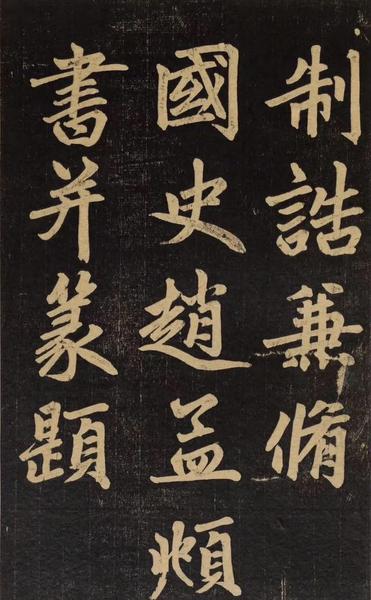 制誥兼脩
國史趙孟頫
書并篆題